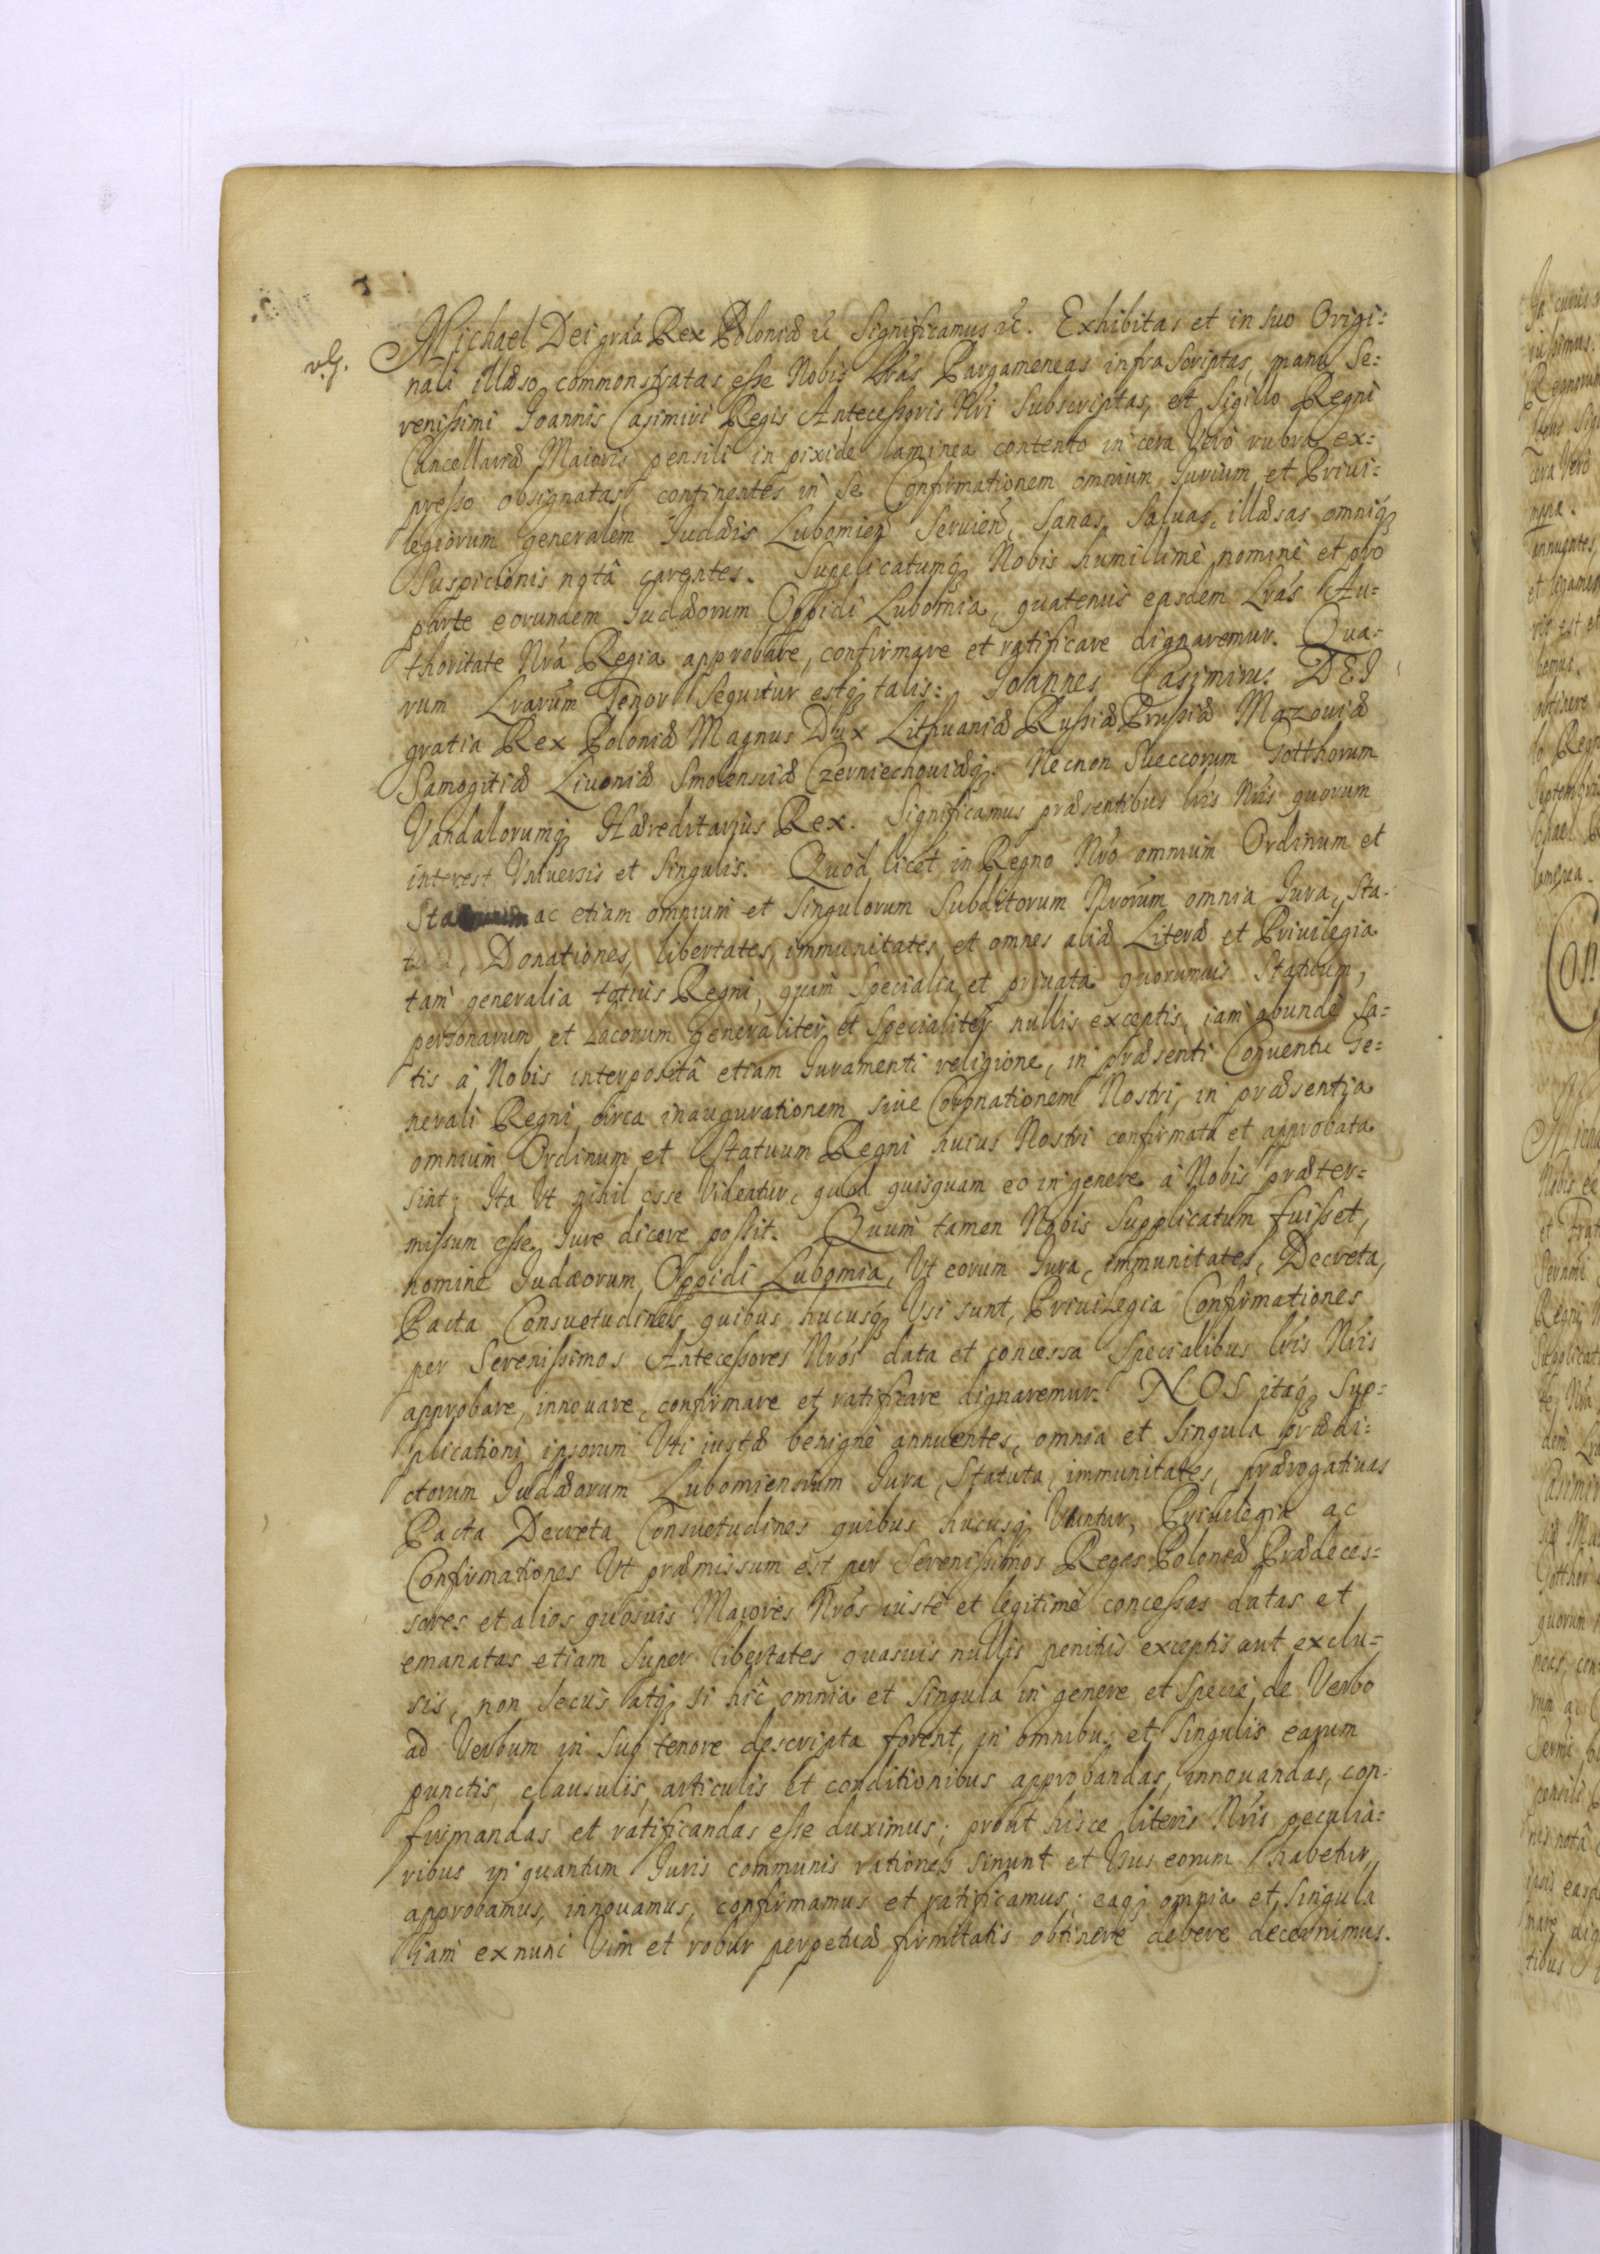 Michael Dei gráa Rex Poloniæ &c Significamus &c. Exhibitas et in suo Origi=
nali illæso commonstratas esse Nobis Lrás Pargameneas infra scriptas, manu Se=
renissimi Joannis Casimiri Regis Antecessoris Nri Subscriptas, et Sigillo Regni
Cancellariæ Maioris pensili in pixide laminea contento in cera Verò rubra ex=
presso obsignatas, continentes in se Confirmationem omnium Jurium et Priui=
legiorum generalem Judæis Lubomien Seruien, Sanas, Saluas, illæsas omniq
Suspicionis notâ carentes. Supplicatumq Nobis humillimè nomine et pro
parte eorundem Judæorum Oppidi Lubomia, quatenus easdem Lrás Au=
thoritate Nrá Regia approbare, confirmare et ratificare dignaremur. Qua=
rum Lrarum Tenor Sequitur estq talis: Joannes Casimirus DEI
gratia Rex Poloniæ Magnus Dux Lithuaniæ Russiæ Prussiæ Mazouiæ
Samogitiæ Liuoniæ Smolensciæ Czerniechouiæq. Necnon Sueccorum Gotthorum
Vandalorumq Hæreditarius Rex. Significamus præsentibus lris Nris quorum
interest Vniuersis et Singulis. Quod licet in Regno Nró omnium Ordinum et
ac etiam omnium et Singulorum Subditorum Nrórum omnia Jura, Sta-
Donationes, libertates, immunitates, et omnes aliæ Literæ et Priuilegia
tam generalia totius Regni, quam Specialia et priuata quorumuis Statuum,
personarum et Locorum generaliter et Specialiter nullis exceptis, iam abundè Sa=
tis à Nobis interpositâ etiam Juramenti religione, in præsenti Conuentu Ge=
nerali Regni circa inaugurationem siue Coronationem Nostri, in præsentia
omnium Ordinum et Statuum Regni huius Nostri confirmata et approbata
sint; Ita Vt nihil esse Videatur, quod quisquam eo in genere à Nobis præter=
missum esse Jure dicere possit. Quum tamen Nobis Supplicatum fuisset,
nomine Judæorum Oppidi Lubomia, Vt eorum Jura, immunitates, Decreta,
Pacta Consuetudines, quibus hucusq Vsi sunt, Priuilegia Confirmationes
per Serenissimos Antecessores Nrós data et concessa Specialibus lris Nris
approbare, innouare, confirmare et ratificare dignaremur. NOS itaq Sup=
plicationi ipsorum Vti iustæ benignè annuentes, omnia et Singula prædi=
ctorum Judæorum Lubomiensium Jura, Statuta, immunitates, prærogatiuas
Pacta Decreta Consuetudines quibus hucusq Vtuntur, Priuilegia ac
Confirmationes Vt præmissum est per Serenissimos Reges Poloniæ Prædeces=
sores et alios quosuis Maiores Nrós iustè et legitimè concessas datas et
emanatas etiam Super libertates quasuis nullis penitus exceptis aut exclu=
sis, non Secus atq si hic omnia et Singula in genere et Specie de Verbo
ad Verbum in suo tenore descripta forent, in omnibus et Singulis earum
punctis, clausulis, articulis et conditionibus approbandas, innouandas, con-
firmandas et ratificandas esse duximus; prout hisce literis Nris peculia=
ribus in quantum Juris communis rationes sinunt et Vsus eorum habetur,
approbamus, innouamus, confirmamus et ratificamus; eaq omnia et Singula
iam ex nunc Vim et robur perpetuæ firmitatis obtinere debere decernimus.